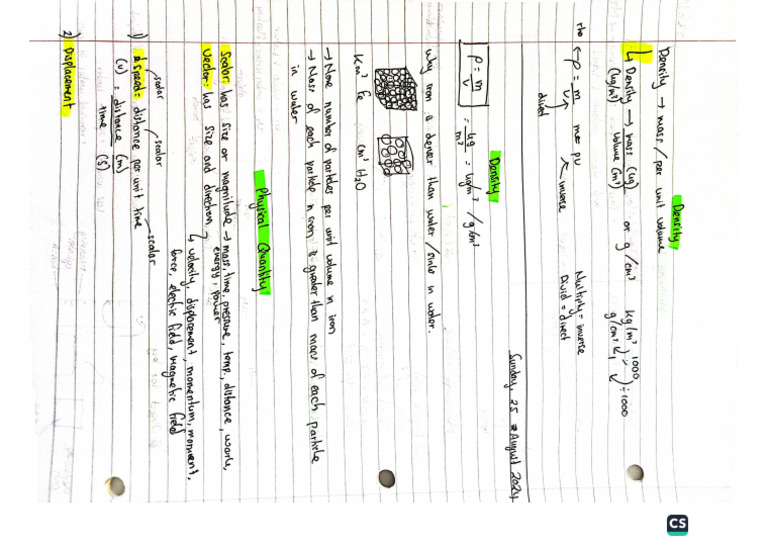 Density
Density → mass / per unit volume
↳ Density → mass (kg) or g/cm³
(kg/m³) volume (m³)
kg/m³ 1000
g/cm³ 1 ÷1000
rho ρ = m m = ρv
v
direct inverse
Multiply = inverse
Divid = direct
Sunday, 25 August 2024
Density
ρ = m = kg = kg/m³ / g/cm³
v m³
Why iron is denser than water / sinks in water.
Km³ Fe cm³ H₂O
→ More number of particles per unit volume in iron
→ Mass of each particle in iron is greater than mass of each particle
in water
Physical Quantity
Scalar: has size or magnitude → mass, time, pressure, temp., distance, work,
energy, power
Vector: has size and direction
↳ velocity, displacement, momentum, moment,
force, electric field, magnetic field
scalar scalar scalar
1) speed: distance per unit time
(v) = distance (m)
time (s)
2) Displacement
CS